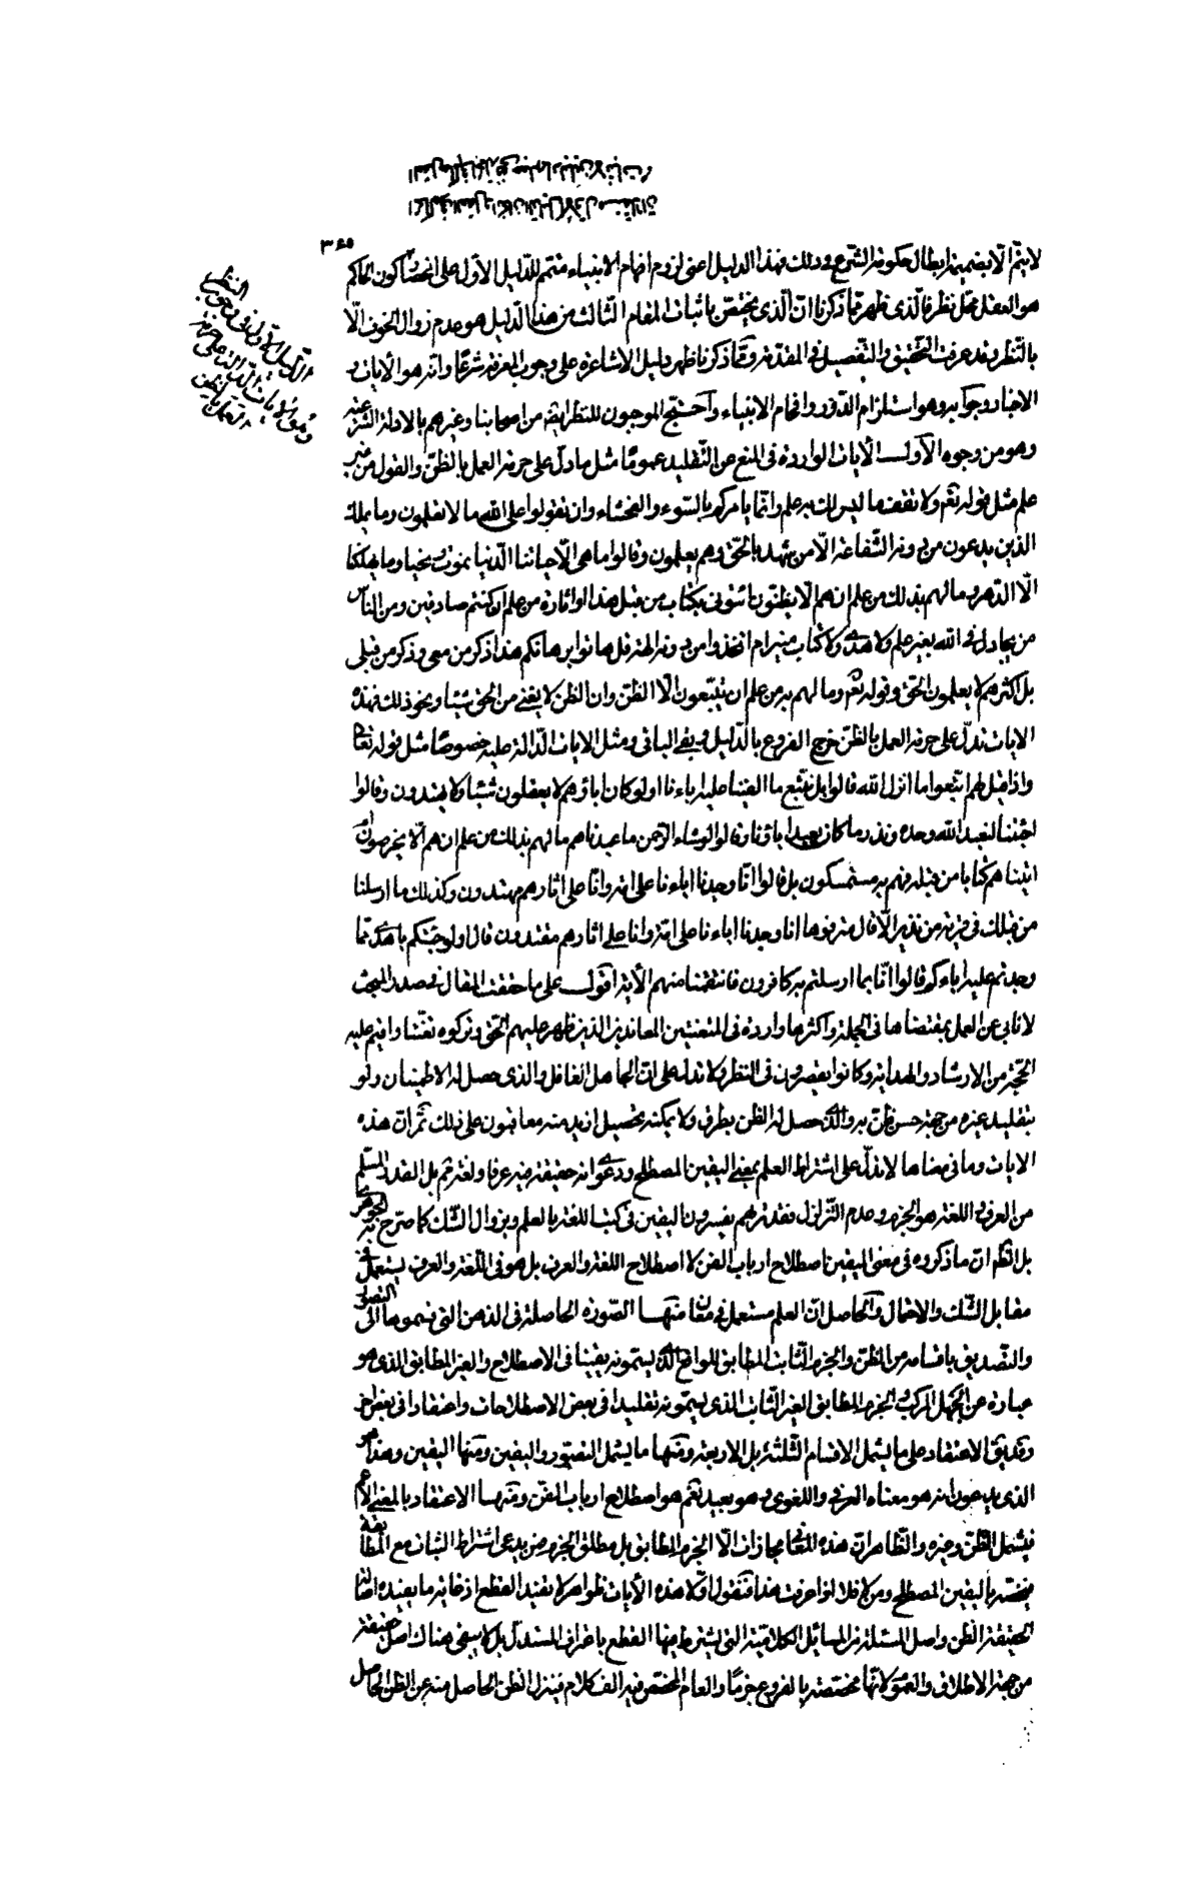 ٣٤٥
لا يتم الا بضميمة ابطال حكومة الشرع وذلك فهذا الدليل اعنى لزوم افحام الانبياء متمم للدليل الاول على انحصار كون الحاكم
هو العقل محل نظر فالذى ظهر مما ذكرنا ان الذى يختص باثبات المقام الثالث من هذا الدليل هو عدم زوال الخوف الا
بالنظر وقد عرفت التحقيق والتفصيل فى المقدمة ومما ذكرنا ظهر دليل الاشاعرة على وجوب المعرفة شرعا وانه هو الآيات و
الاخبار وجوابه وهو استلزام الدور وافحام الانبياء واحتج الموجبون للنظر ايضا من اصحابنا وغيرهم بالادلة الشرعية
وهو من وجوه الاول الآيات الواردة فى المنع عن التقليد عموما مثل ما دل على حرمة العمل بالظن والقول من غير
علم مثل قوله تعالى ولا تقف ما ليس لك به علم وانما يامركم بالسوء والفحشاء وان تقولوا على الله ما لا تعلمون وما يملك
الذين يدعون من دونه الشفاعة الا من شهد بالحق وهم يعلمون وقالوا ما هى الا حياتنا الدنيا نموت ونحيا وما يهلكنا
الا الدهر وما لهم بذلك من علم ان هم الا يظنون ائتونى بكتاب من قبل هذا او اثارة من علم ان كنتم صادقين ومن الناس
من يجادل فى الله بغير علم ولا هدى ولا كتاب منير ام اتخذوا من دونه الهة قل هاتوا برهانكم هذا ذكر من معى وذكر من قبلى
بل اكثرهم لا يعلمون الحق وقوله تعالى وما لهم به من علم ان يتبعون الا الظن وان الظن لا يغنى من الحق شيئا ونحو ذلك فهذه
الايات تدل على حرمة العمل بالظن خرج الفروع بالدليل وبقى الباقى ومثل الايات الدالة عليه خصوصا مثل قوله تعالى
واذا قيل لهم اتبعوا ما انزل الله قالوا بل نتبع ما الفينا عليه اباءنا اولو كان اباؤهم لا يعقلون شيئا ولا يهتدون وقالوا
اجئتنا لنعبد الله وحده ونذر ما كان يعبد اباؤنا وقالوا لو شاء الرحمن ما عبدناهم ما لهم بذلك من علم ان هم الا يخرصون ام
اتيناهم كتابا من قبله فهم به مستمسكون بل قالوا انا وجدنا اباءنا على امة وانا على اثارهم مهتدون وكذلك ما ارسلنا
من قبلك فى قرية من نذير الا قال مترفوها انا وجدنا اباءنا على امة وانا على اثارهم مقتدون قال اولو جئتكم باهدى مما
وجدتم عليه اباءكم قالوا انا بما ارسلتم به كافرون فانتقمنا منهم الآية اقول على ما حققت المقال فى صدر المبحث
لا نابى عن العمل بمقتضاها فى الجملة واكثرها واردة فى المتعنتين المعاندين الذين ظهر عليهم الحق وتركوه تعنتا واقيم عليه
الحجة من الارشاد والهداية وكانوا يقصرون فى النظر ولا تدل على ان الجاهل الغافل والذى حصل له الاطمينان ولو
بتقليد غيره من جهة حسن ظن به والذى حصل له الظن بطرف ولا يمكنه تحصيل ازيد منه معاقبون على ذلك ثم ان هذه
الايات وما فى معناها لا تدل على اشتراط العلم بمعنى اليقين المصطلح ودعوى انه حقيقة فيه عرفا ولغة ثم بل القدر المسلم
من العرف واللغة هو الجزم وعدم التزلزل فقد تريهم يفسرون اليقين فى كتب اللغة بالعلم وبزوال الشك كما صرح به الجوهرى
بل الظاهر ان ما ذكروه فى معنى اليقين اصطلاح ارباب الفن لا اصطلاح اللغة والعرف بل هو فى اللغة والعرف يستعمل فى
مقابل الشك والاحتمال والحاصل ان العلم مستعمل فى معان منها الصورة الحاصلة فى الذهن التى قسموها الى التصور
والتصديق باقسامه من الظن والجزم الثابت المطابق للواقع الذى يسمونه يقينا فى الاصطلاح والغير المطابق الذى هو
عبارة عن الجهل المركب والجزم المطابق الغير الثابت الذى يسمونه تقليدا فى بعض الاصطلاحات واعتقادا فى بعض اخر
وقد يطلق الاعتقاد على ما يشمل الاقسام الثلثة بل الاربعة ومنها ما يشمل التصور واليقين ومنها اليقين وهذا هو
الذى يدعون انه هو معناه العرفى واللغوى وهو بعيد نعم هو اصطلاح ارباب الفن ومنها الاعتقاد بالمعنى الاعم
فيشمل الظن وغيره والظاهر ان هذه المعانى مجازات الا الجزم المطابق بل مطلق الجزم ومن يدعى اشتراط الثبات مع المطابقة
يخصه باليقين المصطلح ومن لا فلا اذا عرفت هذا فنقول اولا هذه الآيات ظواهر لا تفيد القطع اذ غاية ما يفيده اصالة
الحقيقة الظن واصل المسئلة من المسائل الكلامية التى يشترط فيها القطع باعتراف المستدل بل لا يبقى هناك اصل حقيقة
من جهة الاطلاق والعموم لانها مخصصة بالفروع جزما والعام المخصص فيه الف كلام فينزل الظن الحاصل منه عن الظن الحاصل